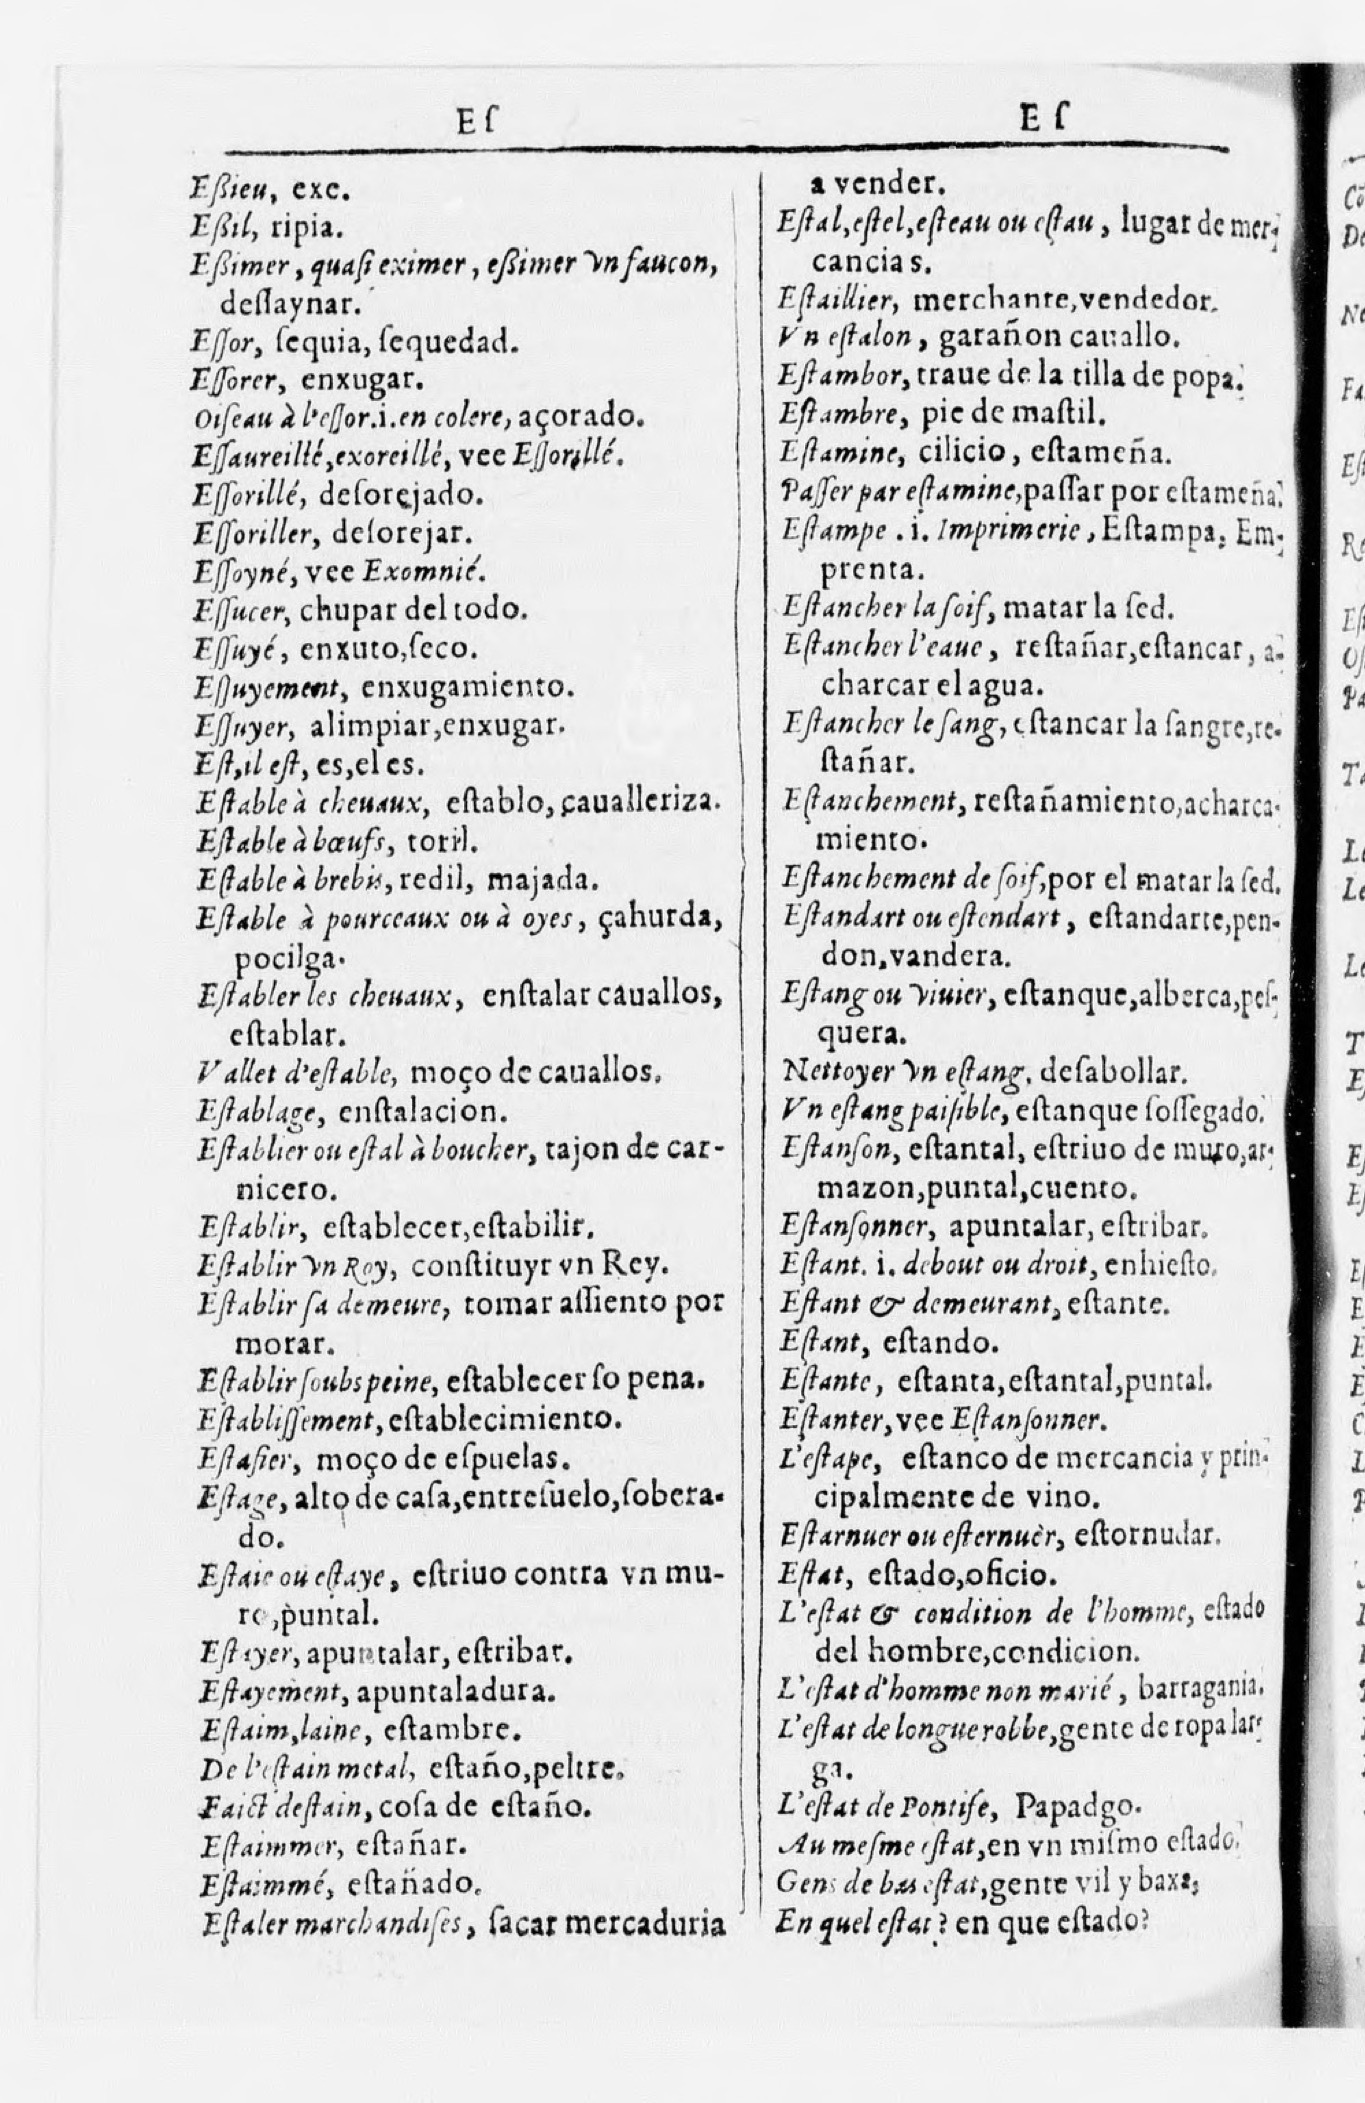 Eſ
Eſ
Eßieu, exe.
Eßil, ripia.
Eßimer, quaſi eximer, eßimer vn faucon,
deſſaynar.
Eſſor, ſequia, ſequedad.
Eſſorer, enxugar.
Oiſeau à l'eſſor.i.en colere, açorado.
Eſſaureillé, exoreillé, vee Eſſorillé.
Eſſorillé, deſorejado.
Eſſoriller, deſorejar.
Eſſoyné, vee Exomnié.
Eſſucer, chupar del todo.
Eſſuyé, enxuto, ſeco.
Eſſuyement, enxugamiento.
Eſſuyer, alimpiar, enxugar.
Eſt, il eſt, es, el es.
Eſtable à cheuaux, eſtablo, cauaalleriza.
Eſtable à bœufs, toril.
Eſtable à brebis, redil, majada.
Eſtable à pourceaux ou à oyes, çahurda,
pocilga.
Eſtabler les cheuaux, enſtalar cauallos,
eſtablar.
Vallet d'eſtable, moço de cauallos.
Eſtablage, enſtalacion.
Eſtablier ou eſtal à boucher, tajon de car-
nicero.
Eſtablir, eſtablecer, eſtabilir.
Eſtablir vn Roy, conſtituyr vn Rey.
Eſtablir ſa demeure, tomar aſſiento por
morar.
Eſtablir ſoubs peine, eſtablecer ſo pena.
Eſtabliſſement, eſtablecimiento.
Eſtafier, moço de eſpuelas.
Eſtage, alto de caſa, entreſuelo, ſobera-
do.
Eſtaie ou eſtaye, eſtriuo contra vn mu-
ro, puntal.
Eſtayer, apuntalar, eſtribar.
Eſtayement, apuntaladura.
Eſtaim, laine, eſtambre.
De l'eſtain metal, eſtaño, peltre.
Faict deſtain, coſa de eſtaño.
Eſtaimmer, eſtañar.
Eſtaimmé, eſtañado.
Eſtaler marchandiſes, ſacar mercaduria
a vender.
Eſtal, eſtel, eſteau ou eſtau, lugar de mer-
cancias.
Eſtaillier, merchante, vendedor.
Vn eſtalon, garañon cauallo.
Eſtambor, traue de la tilla de popa.
Eſtambre, pie de maſtil.
Eſtamine, cilicio, eſtameña.
Paſſer par eſtamine, paſſar por eſtameña.
Eſtampe .i. Imprimerie, Eſtampa, Em-
prenta.
Eſtancher la ſoif, matar la ſed.
Eſtancher l'eaue, reſtañar, eſtancar, a-
charcar el agua.
Eſtancher le ſang, eſtancar la ſangre, re-
ſtañar.
Eſtanchement, reſtañamiento, acharca-
miento.
Eſtanchement de ſoif, por el matar la ſed.
Eſtandart ou eſtendart, eſtandarte, pen-
don, vandera.
Eſtang ou viuier, eſtanque, alberca, peſ-
quera.
Nettoyer vn eſtang, deſabollar.
Vn eſtang paiſible, eſtanque ſoſſegado.
Eſtanſon, eſtantal, eſtriuo de muro, ar-
mazon, puntal, cuento.
Eſtanſonner, apuntalar, eſtribar.
Eſtant. i. debout ou droit, enhieſto.
Eſtant & demeurant, eſtante.
Eſtant, eſtando.
Eſtante, eſtanta, eſtantal, puntal.
Eſtanter, vee Eſtanſonner.
L'eſtape, eſtanco de mercancia y prin-
cipalmente de vino.
Eſtarnuer ou eſternuèr, eſtornudar.
Eſtat, eſtado, oficio.
L'eſtat & condition de l'homme, eſtado
del hombre, condicion.
L'eſtat d'homme non marié, barragania.
L'eſtat de longue robbe, gente de ropa lar-
ga.
L'eſtat de Pontife, Papadgo.
Au meſme eſtat, en vn miſmo eſtado.
Gens de bas eſtat, gente vil y baxa,
En quel eſtat? en que eſtado?